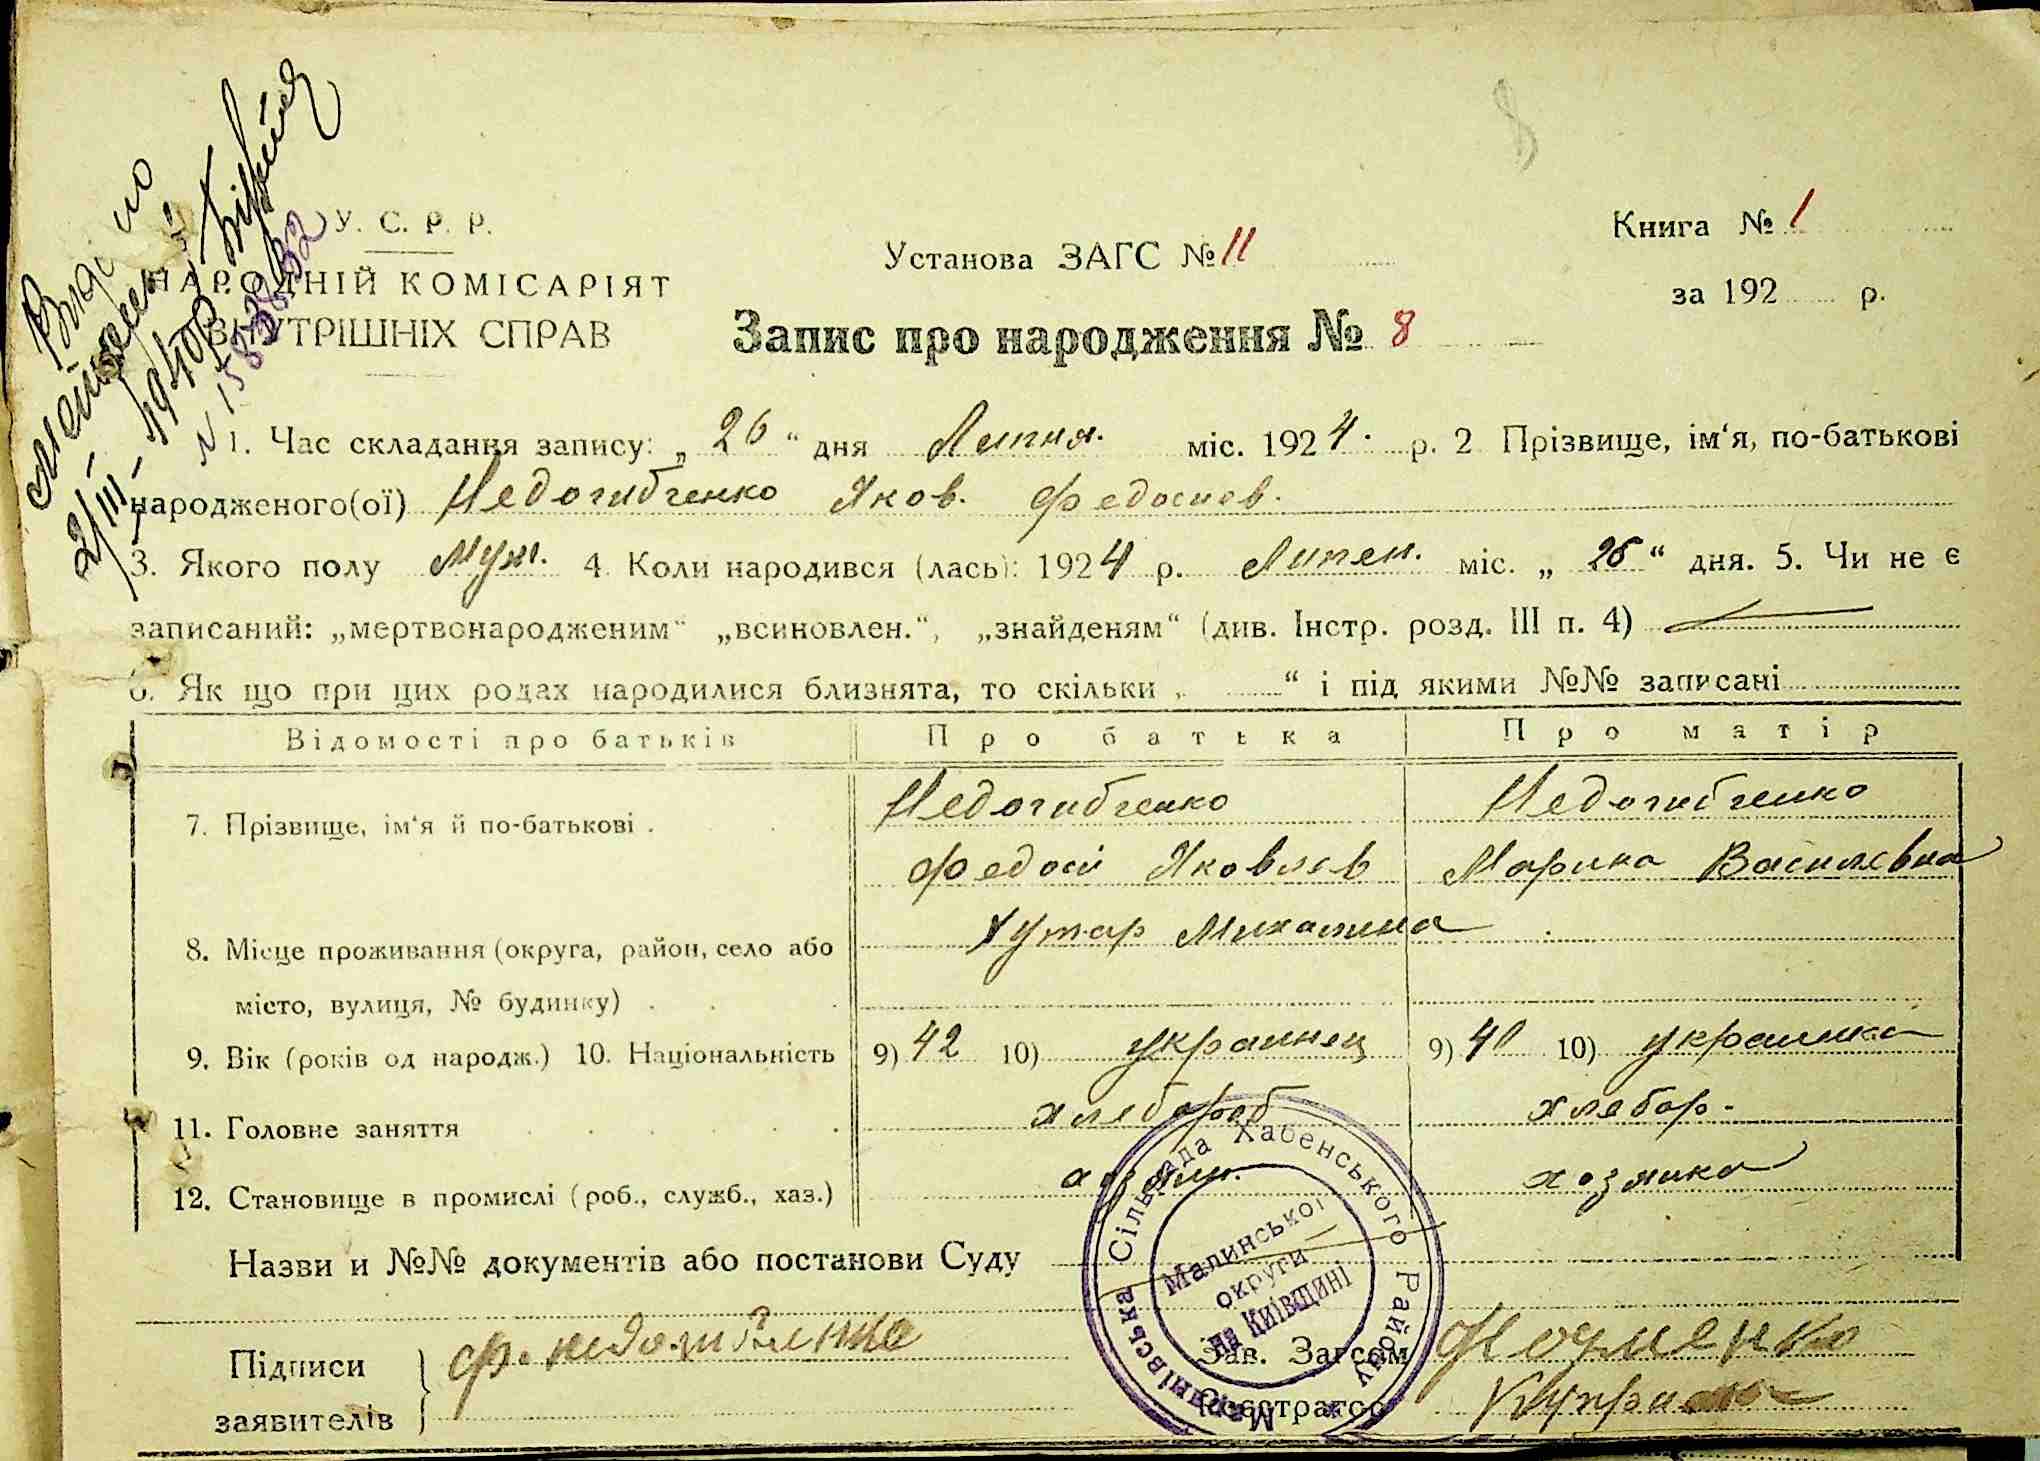 8
У. С. Р. Р.
НАРОДНІЙ КОМІСАРІЯТ
ВНУТРІШНІХ СПРАВ
21/III 1940р.
N 158
Установа ЗАГС № 11
Книга № 1
за 192 р.
Запис про народження № 8
1. Час складання запису: „26“ дня Липня. міс. 1924. р. 2 Прізвище, ім‘я, по-батькові
народженого(ої) Недогибченко Яков. Федосиев.
3. Якого полу Муж. 4. Коли народився (лась): 1924 р. Липен. міс. „26“ дня. 5. Чи не є
записаний: „мертвонародженим“ „всиновлен.“, „знайденям“ (див. Інстр. розд. III п. 4)
6. Як що при цих родах народилися близнята, то скільки „ “ і під якими №№ записані
Відомості про батьків Про батька Про матір
7. Прізвище, ім‘я й по-батькові . Недогибченко Недогибченко
Федосі Яковлев Марина Васильевна
8. Місце проживання (округа, район, село або Хутар
місто, вулиця, № будинку) .
9. Вік (років од народж.) 10. Національність 9) 42 10) украинец 9) 40 10) украинка
11. Головне заняття хлебороб хлебор.
12. Становище в промислі (роб., служб., хаз.) хозяин. хозяика
Назви и №№ документів або постанови Суду
Сільрада Хабенського Району
Малинської
округи
на Київщині
Підписи
заявителів
Ф. Недогибченко
Зав. Загсом Науменко
Реєстратор